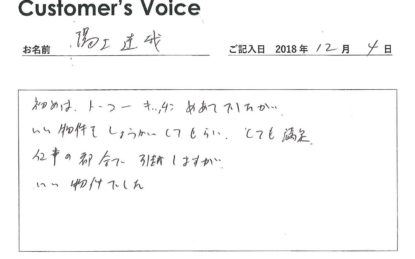 Customer's Voice
お名前 陽工達哉 ご記入日 2018年 12月 4日
初めは、トーコーキッチンめあてでしたが、
いい物件をしょうかいしてもらい、とても満足。
仕事の都合で引越しますが、
いい物件でした